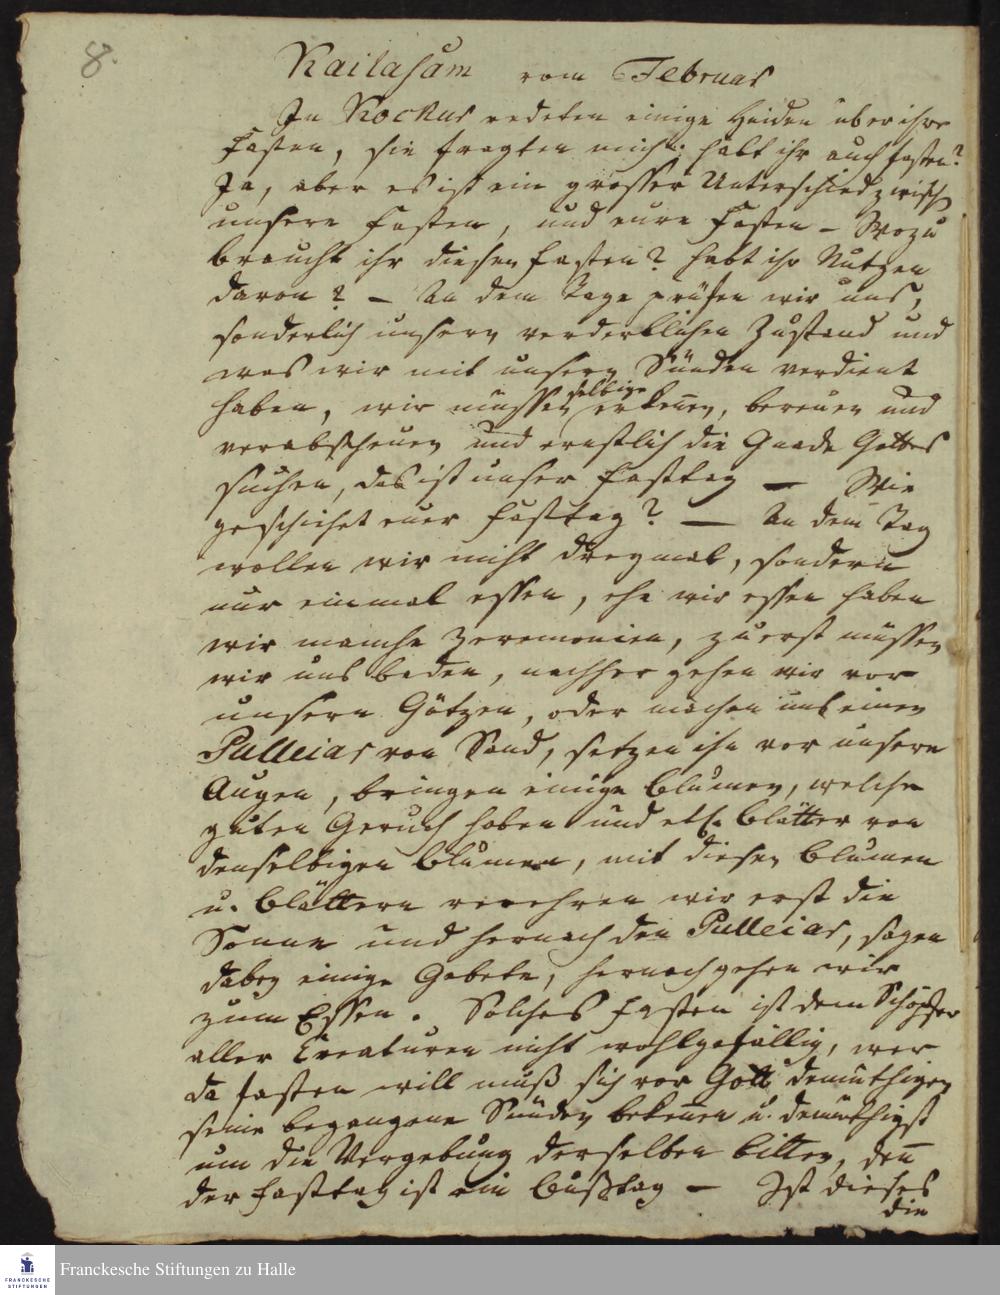 8.
Kailasam vom Februar
In Kockur redeten einige Heiden über ihre
Fasten, sie fragten mich: habt ihr auch fasten?
Ja, aber es ist ein grosser Unterschied zwisch
unsere Fasten, und eure Fasten – Wozu
braucht ihr diesen fasten? habt ihr Nutzen
davon? – An dem Tage prüfen wir uns,
sonderlich unsern verderblichen Zustand und
was wir mit unsern Sünden verdient
haben, wir müssen selbige erkeñen, bereuen und
verabscheuen und ernstlich die Gnade Gottes
suchen, das ist unser Fasttag — Wie
geschiehet euer Fasttag? — An dem Tag
wollen wir nicht dreymal, sondern
nur einmal essen, ehe wir essen haben
wir manche Zeremonien, zuerst müssen
wir uns baden, nachher gehen wir vor
unsern Götzen, oder machen uns einen
Pulleiar von Sand, setzen ihn vor unsere
Augen, bringen einige Blumen, welche
guten Geruch haben und etl. Blätter von
denselbigen Blumen, mit diesen Blumen
u. Blättern verehren wir erst die
Sonne und hernach den Pulleiar, sagen
dabey einige Gebete, hernach gehen wir
zum Essen. Solches fasten ist dem Schöpfer
aller Creaturen nicht wohlgefällig, wer
da fasten will muß sich vor Gott demüthigen
seine begangene Sünden bekeñen u. demüthigst
um die Vergebung derselben bitten, deñ
der Fasttag ist ein Bußtag – Ist dieses
die
Franckesche Stiftungen zu Halle
FRANCKESCHE
STIFTUNGEN